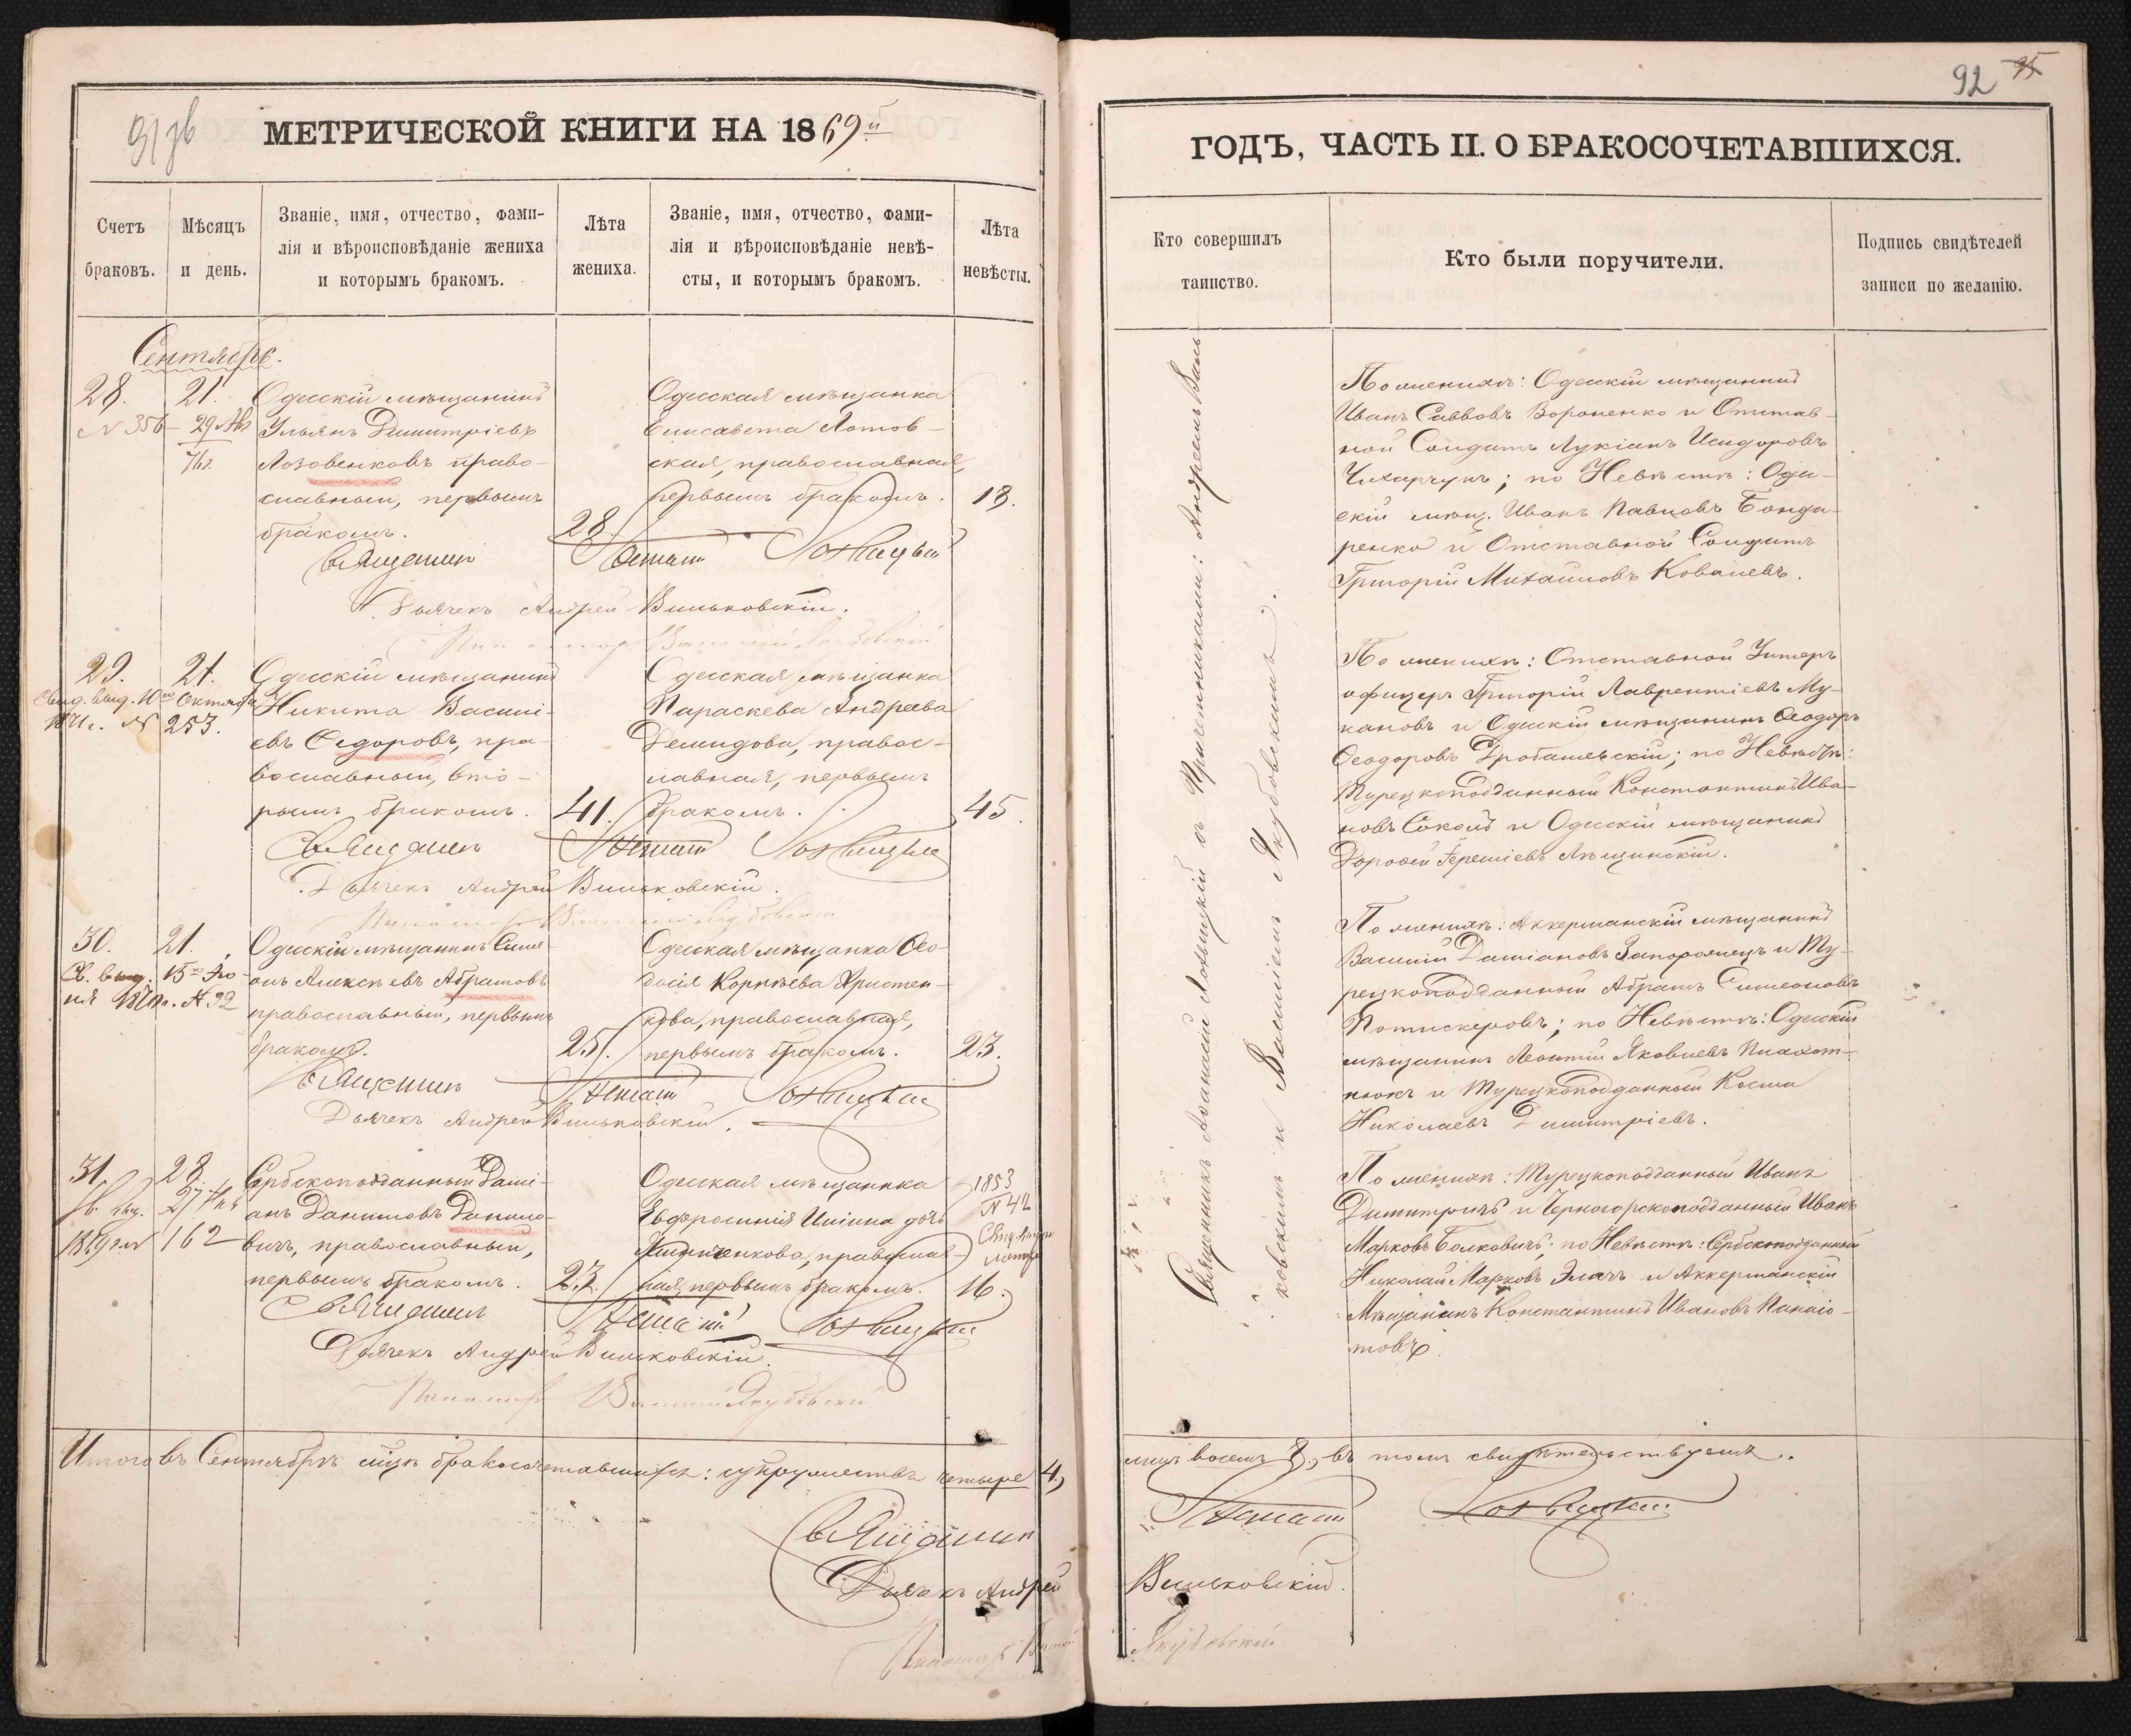 91 зв
МЕТРИЧЕСКОЙ КНИГИ НА 1869й
Счетъ браковъ.
Мѣсяцъ и день.
Званіе, имя, отчество, фами-
лія и вѣроисповѣданіе жениха
и которымъ бракомъ.
Лѣта жениха.
Званіе, имя, отчество, фами-
лія и вѣроисповѣданіе невѣ-
сты, и которымъ бракомъ.
Лѣта невѣсты.
Сентябрь.
28.
21.
N 356
29 Авг
71г.
Одесскій мѣщанинъ
Ульянъ Димитріевъ
Лозовенковъ право-
славный, первымъ
бракомъ.
28
Одесская мѣщанка
Елисавета Лотов-
ская, православная,
первымъ бракомъ.
18.
Священникъ Лотницкій
Дьячекъ Андрей Виньковскій.
29.
21.
Свид. выд. 10го Октября
1871г. N 253.
Одесскій мѣщанинъ
Никита Василі-
евъ Ѳедоровъ, пра-
вославный, вто-
рымъ бракомъ.
41.
Одесская мѣщанка
Параскева Андреева
Демидова, правос-
лавная, первымъ
бракомъ.
45.
Священникъ
Дьячекъ Андрей Виньковскій.
30.
21.
Св. выд. 15го Ію-
ня N. 92
Одесскій мѣщанинъ Симе-
онъ Алексѣевъ Абрамовъ
православный, первымъ
бракомъ.
25.
Одесская мѣщанка Ѳео-
досія Корнѣева Христен-
кова, православная,
первымъ бракомъ.
23.
Священникъ
Дьячекъ Андрей Виньковскій.
31.
28.
162
Сербскоподданный Дамі-
анъ Даниловъ Данило-
вичъ, православный,
первымъ бракомъ.
23.
Одесская мѣщанка
Евфросинія Иліина дочь
православ-
ная, первымъ бракомъ.
1853
N 42
16.
Священникъ
Дьячекъ Андрей Виньковскій.
Итого въ Сентябрѣ мцѣ бракосочетавшихся: супружествъ четыре 4,
Священникъ
Дьячекъ Андрей
92 95
ГОДЪ, ЧАСТЬ II. О БРАКОСОЧЕТАВШИХСЯ.
Кто совершилъ таинство.
Кто были поручители.
Подпись свидѣтелей записи по желанію.
Священникъ Аѳанасій Лотницкій съ Причетниками: Андреемъ Винь
ковскимъ и Василіемъ Якубовскимъ.
По женихѣ: Одесскій мѣщанинъ
Иванъ Савовъ Вороненко и Отстав-
ной Солдатъ Лукіанъ Исидоровъ
Чихарчукъ; по Невѣстѣ: Оде-
скій мѣщ. Иванъ Павловъ Бонда-
ренко и Отставной Солдатъ
Григорій Михайловъ Ковалевъ.
По женихѣ: Отставной Унтеръ
офицеръ Григорій Лаврентіевъ Му-
кановъ и Одесскій мѣщанинъ Ѳеодоръ
Ѳеодоровъ Дробашевскій; по Невѣстѣ:
Турецкоподданный Константинъ Ива-
новъ Соколъ и Одесскій мѣщанинъ
Дороѳей Іереміевъ Лещинскій.
По женихѣ: Аккерманскій мѣщанинъ
Василій Даміановъ Запорожецъ и Ту-
рецкоподданный Абрамъ Симеоновъ
Потискеровъ; по Невѣстѣ: Одесскій
мѣщанинъ Леонтій Яковлевъ Плахот-
нюкъ и Турецкоподданный Косма
Николаевъ Димитріевъ.
По женихѣ: Турецкоподданный Иванъ
Димитричъ и Черногорскоподданный Иванъ
Марковъ Болковичъ; по Невѣстѣ: Сербскоподданный
Николай Марковъ Эличъ и Аккерманскій
Мѣщанинъ Константинъ Ивановъ Панаіо-
товъ.
лицъ восемь 8, въ томъ свидѣтельствуемъ.
Виньковскій.
Якубовскій